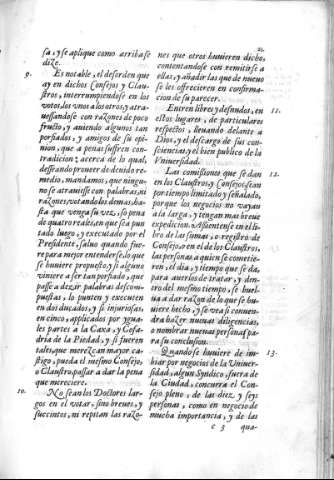 21.
sa, y se aplique como arriba se
dize.
9. Es notable, el desorden que
ay en dichos Consejos y Clau-
stros, interrumpiendose en los
votos, los vnos a los otros, y atra-
uessandose con razones de poco
fructo, y auiendo algunos tan
porfiados, y amigos de su opi-
nion, que a penas suffren con-
tradicion: acerca de lo qual,
desseando proueer de deuido re-
medio, mandamos, que ningu-
no se atrauiesse con palabras, ni
razones, votando los demas, ha-
sta que venga su vez, so pena
de quatro reales, en que sea pun
tado luego, y executado por el
Presidente, saluo quando fue-
re para mejor entenderse, lo que
se huuiere propuesto, y si alguno
viniere a ser tan porfiado, que
passe a dezir palabras descom-
puestas, lo punten y executen
en dos ducados, y si injuriosas,
en cinco, applicados por ygua-
les partes a la Caxa, y Cofa-
dria de la Piedad, y si fueren
tales, que merezcan mayor ca-
stigo, pueda el mesmo Consejo,
o Claustro, passar a dar la pena
que mereciere.
10. No sean los Doctores lar-
gos en el votar, sino breues, y
succintos, ni repitan las razo-
nes que otros huuieren dicho,
contentandose con remitirse a
ellas, y añadir las que de nueuo
se les offrecieren en confirma-
cion de su parecer.
11. Entren libres y desnudos, en
estos lugares, de particulares
respectos, lleuando delante a
Dios, y el descargo de sus con-
sciencias, y el bien publico de la
Vniuersidad.
12. Las comissiones que se dan
en los Claustros, y Consejos, sean
por tiempo limitado, y señalado,
porque los negocios no vayan
a la larga, y tengan mas breue
expedicion. Assientense en el li-
bro de las sumas, o registro de
Consejo, o en el de los Claustros,
las personas a quien se cometie-
ren, el dia, y tiempo que se da,
para auerlos de tratar, y den-
tro del mesmo tiempo, se buel-
ua a dar razon de lo que se hu-
uiere hecho, y se vea si conuen-
dra hazer nueuas diligencias,
o nombrar nueuas personas pa-
ra su conclusion.
13. Quando se huuiere de im-
biar por negocios de la Vniuer-
sidad, algun Syndico, fuera de
la Ciudad, concurra el Con-
sejo pleno, de las diez, y seys
personas, como en negocio de
mucha importancia, y de las
c 3 qua-